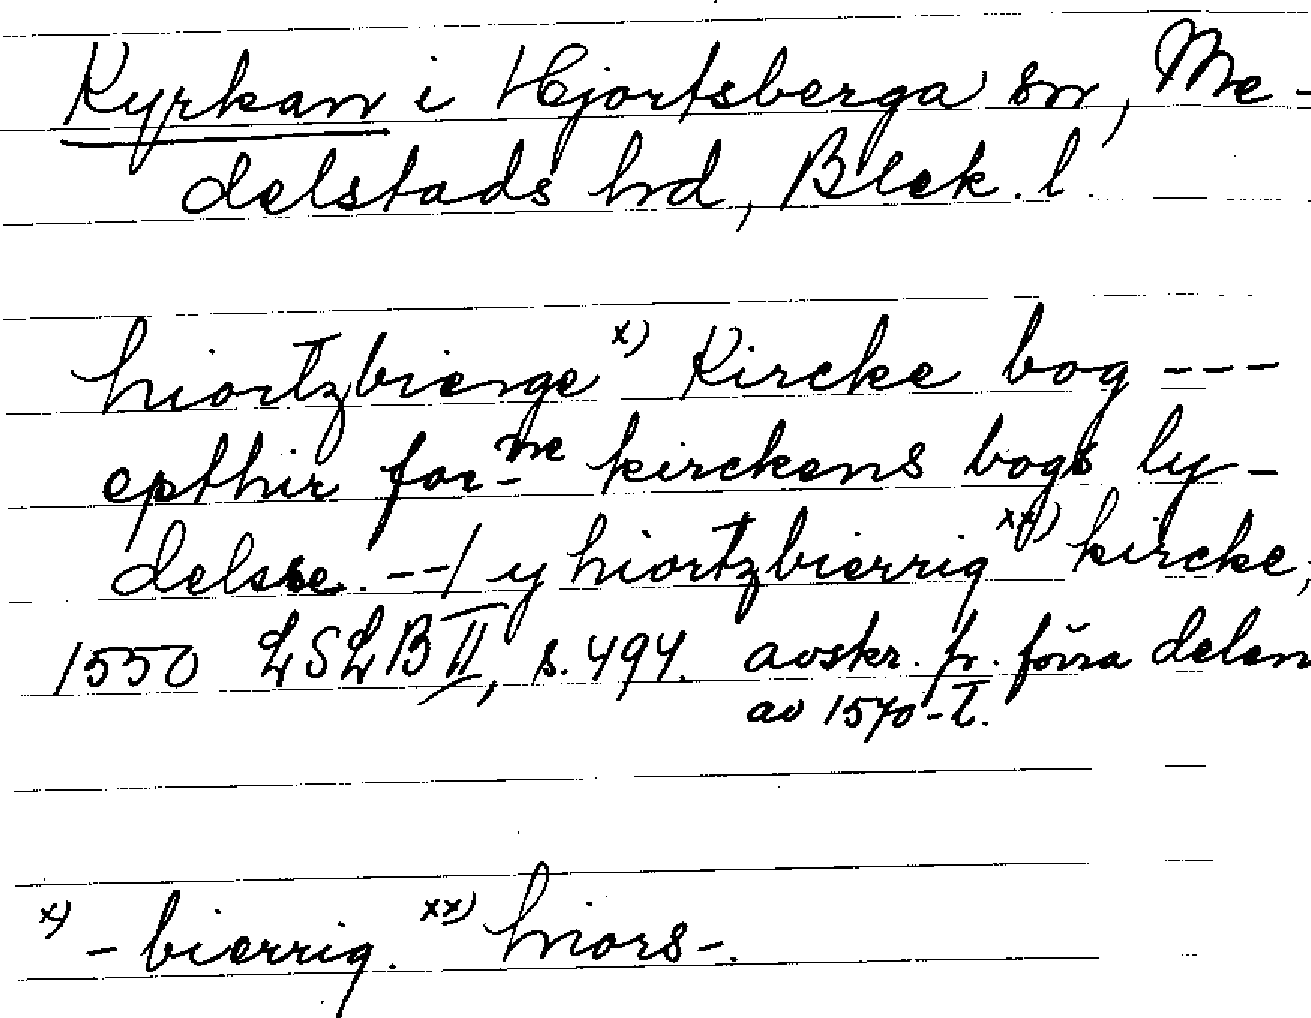 Kyrkan i Hjortsberga sn, Me-
delstads hd, Blek. l.
hiortzbierge x) Kircke bog ---
epthir for-ne kirckens bogs ly-
delsse. --/ y hiortzbierrig xx) kircke,
1550 LSLB II, s. 494. avskr. fr. förra delen
av 1570-t.
x) -bierrig. xx) hiors-.